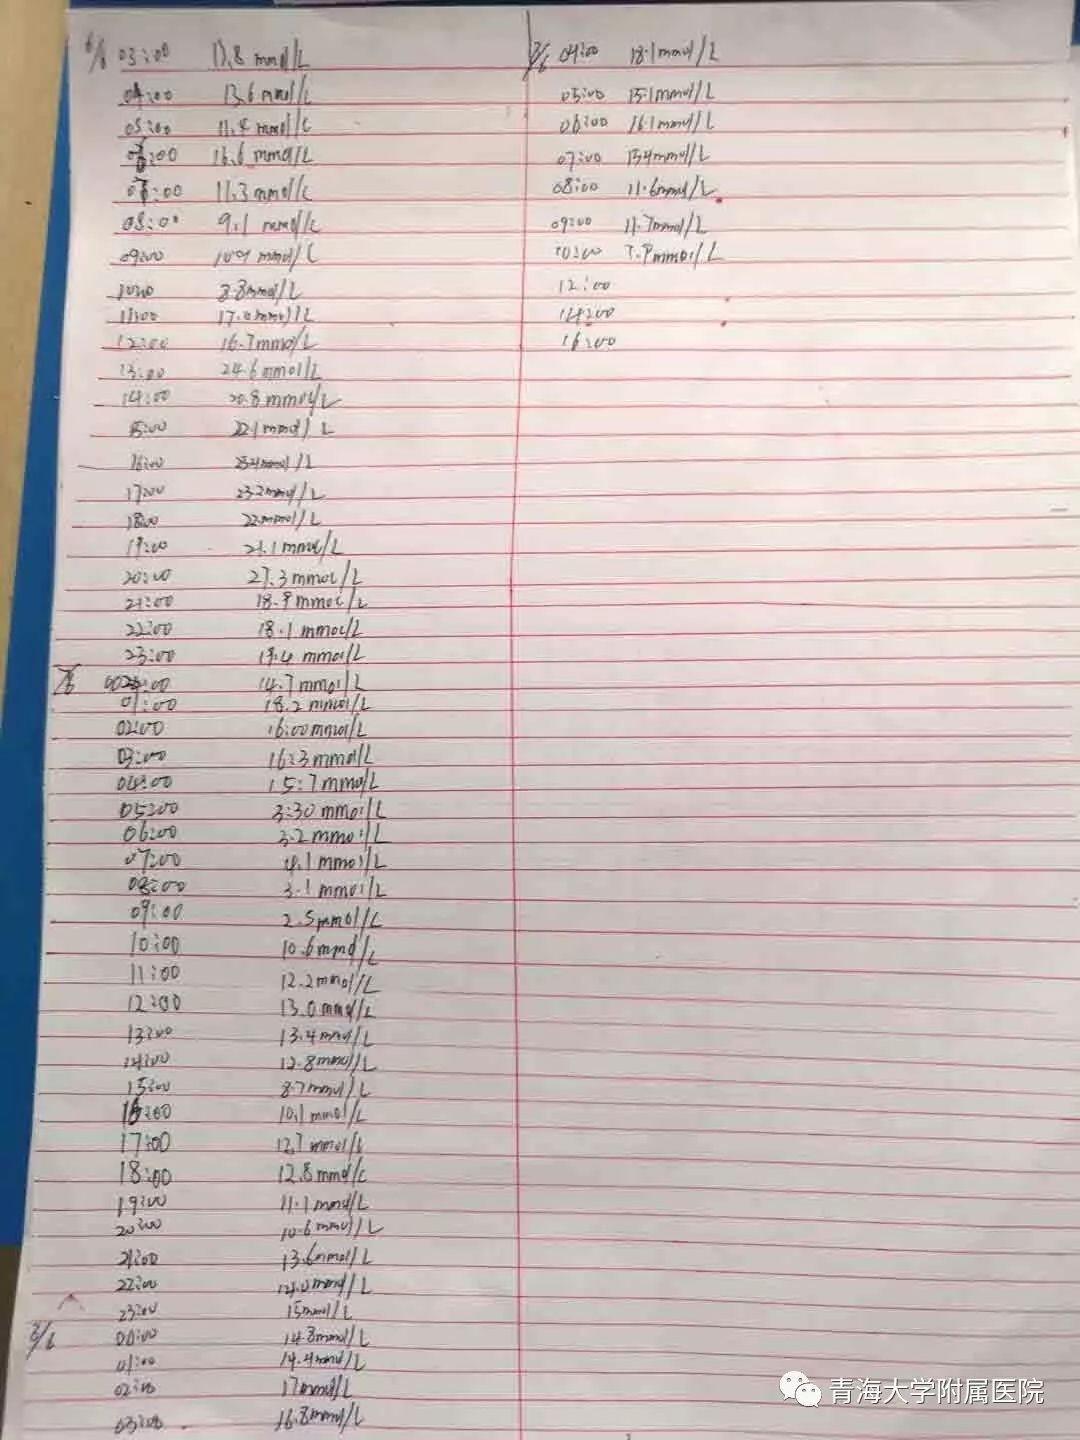 6/6 03:00 13.8 mmol/L
04:00 13.6 mmol/L
05:00 11.4 mmol/L
06:00 16.6 mmol/L
07:00 11.3 mmol/L
08:00 9.1 mmol/L
09:00 10.9 mmol/L
10:00 8.8 mmol/L
11:00 17.0 mmol/L
12:00 16.7 mmol/L
13:00 24.6 mmol/L
14:00 20.8 mmol/L
15:00 22.1 mmol/L
16:00 mmol/L
17:00 23.2 mmol/L
18:00 22 mmol/L
19:00 21.1 mmol/L
20:00 27.3 mmol/L
21:00 18.9 mmol/L
22:00 18.1 mmol/L
23:00 19.4 mmol/L
7/6 00:00 14.7 mmol/L
01:00 18.2 mmol/L
02:00 16:00 mmol/L
03:00 16:3 mmol/L
04:00 15:7 mmol/L
05:00 3:30 mmol/L
06:00 3.2 mmol/L
07:00 4.1 mmol/L
08:00 3.1 mmol/L
09:00 2.5 mmol/L
10:00 10.6 mmol/L
11:00 12.2 mmol/L
12:00 13.0 mmol/L
13:00 13.4 mmol/L
14:00 12.8 mmol/L
15:00 8.7 mmol/L
16:00 10.1 mmol/L
17:00 12.7 mmol/L
18:00 12.8 mmol/L
19:00 11.1 mmol/L
20:00 10.6 mmol/L
21:00 13.6 mmol/L
22:00 14.0 mmol/L
23:00 15 mmol/L
8/6 00:00 14.8 mmol/L
01:00 14.4 mmol/L
02:00 17 mmol/L
03:00 16.8 mmol/L
04:00 18.1 mmol/L
05:00 15.1 mmol/L
06:00 16.1 mmol/L
07:00 15.4 mmol/L
08:00 11.6 mmol/L
09:00 11.7 mmol/L
10:00 7.9 mmol/L
12:00
14:00
16:00
青海大学附属医院